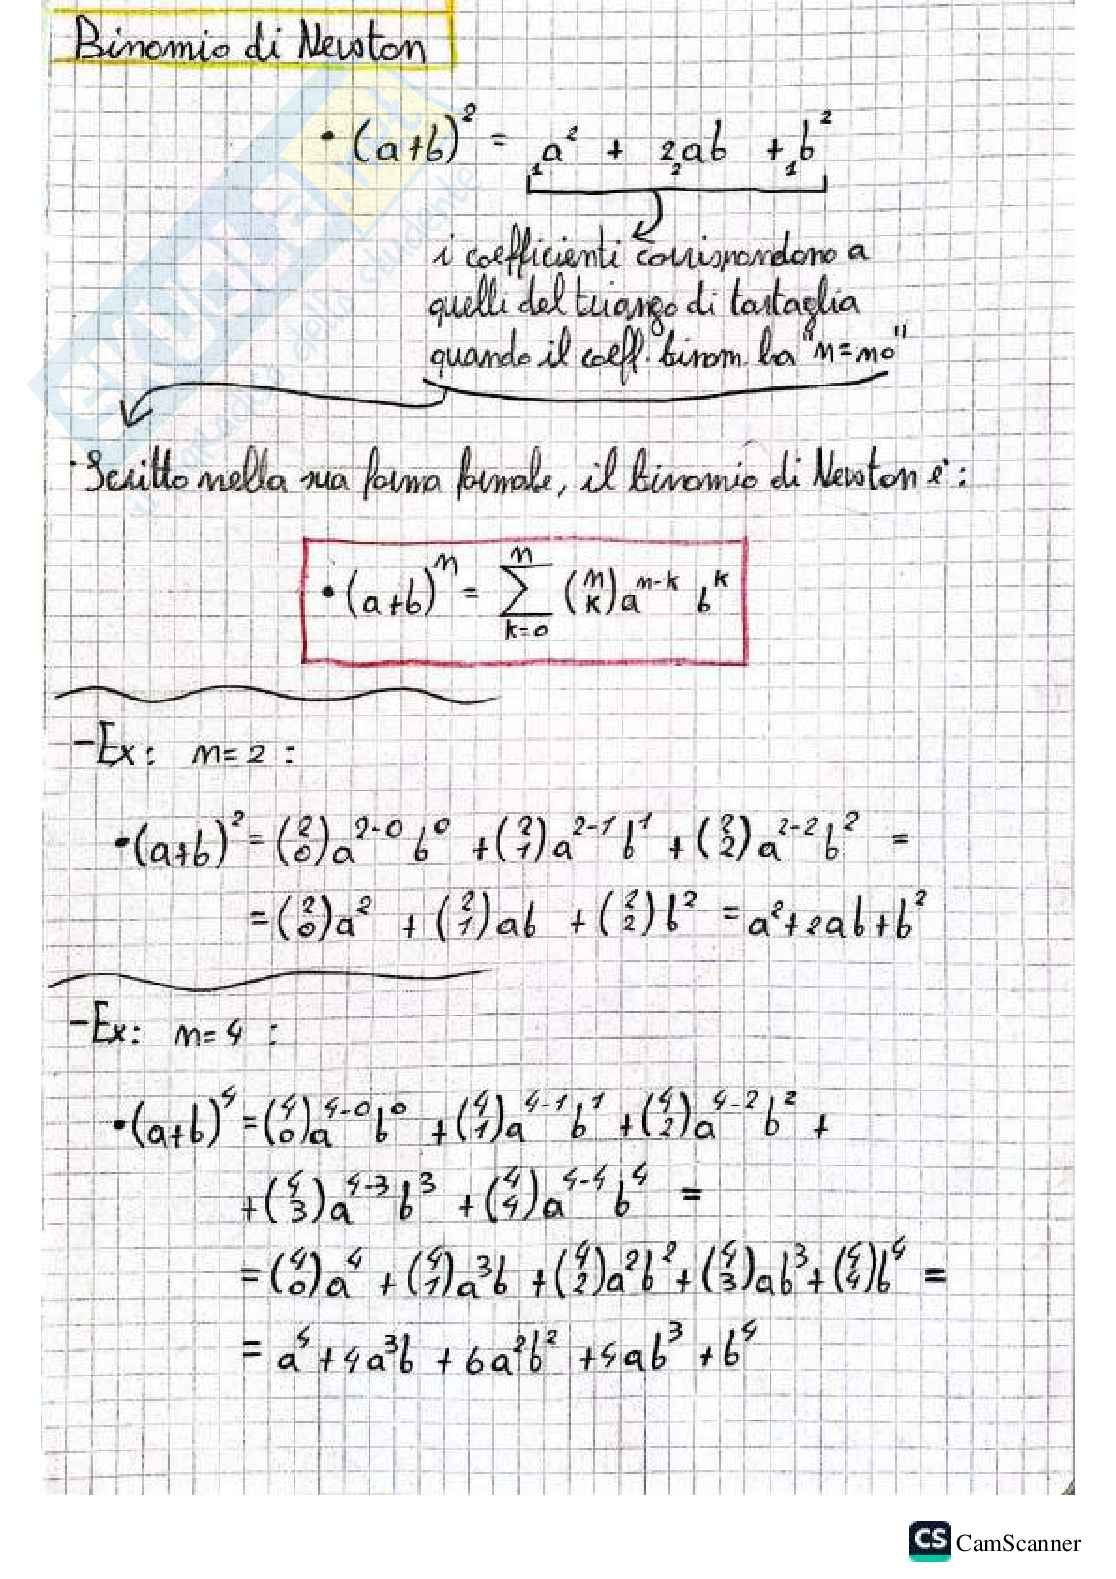 Binomio di Newton
• (a+b)² = a² + 2ab + b²
1 2 1
i coefficienti corrispondono a
quelli del triango di tartaglia
quando il coeff. binom. ha "n=no"
• Scritto nella sua forma formale, il binomio di Newton è:
• (a+b)ⁿ = ∑ₖ₌₀ⁿ (n k) aⁿ⁻ᵏ bᵏ
- Ex: n=2 :
• (a+b)² = (2 0)a²⁻⁰ b⁰ + (2 1)a²⁻¹b¹ + (2 2)a²⁻²b² =
= (2 0)a² + (2 1)ab + (2 2)b² = a²+2ab+b²
- Ex: n=4 :
• (a+b)⁴ = (4 0)a⁴⁻⁰b⁰ + (4 1)a⁴⁻¹b¹ + (4 2)a⁴⁻²b² +
+ (4 3)a⁴⁻³b³ + (4 4)a⁴⁻⁴b⁴ =
= (4 0)a⁴ + (4 1)a³b + (4 2)a²b² + (4 3)ab³ + (4 4)b⁴ =
= a⁴ + 4a³b + 6a²b² + 4ab³ + b⁴
CS CamScanner